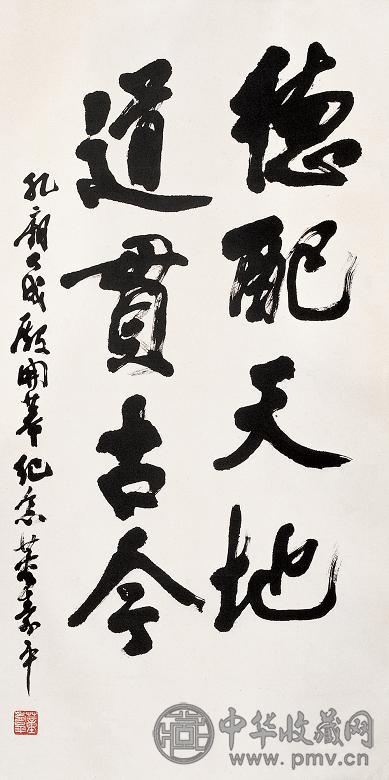 德配天地
道貫古今
孔廟大成殿開幕纪念董寿平
中华收藏网
www.pmv.cn